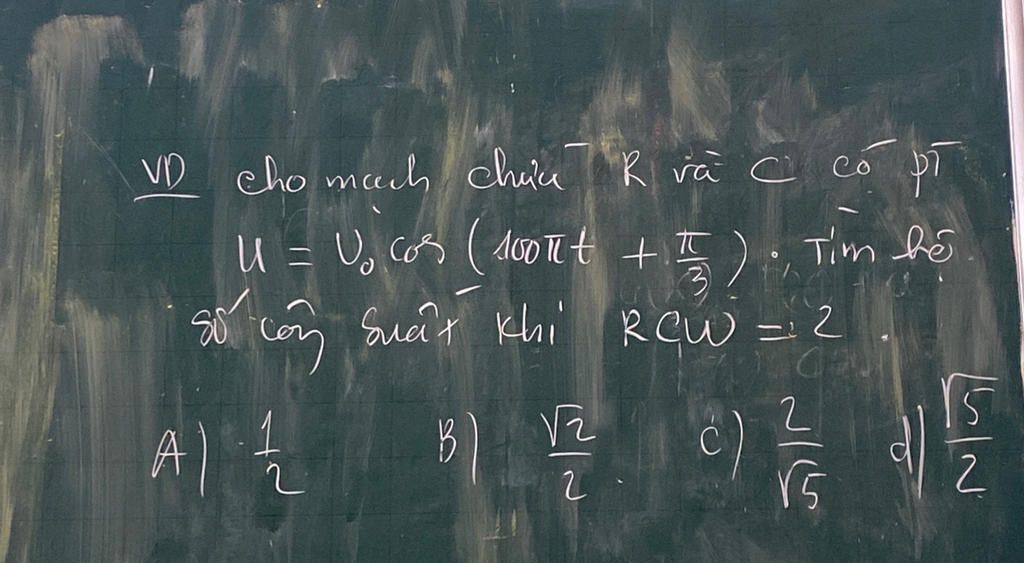 VD cho mạch chứa R và C có pT
u = U₀ cos (100πt + π/3). Tìm hệ
số công suất khi RCW = 2.
A) 1/2 B) √2/2. C) 2/√5 d) √5/2